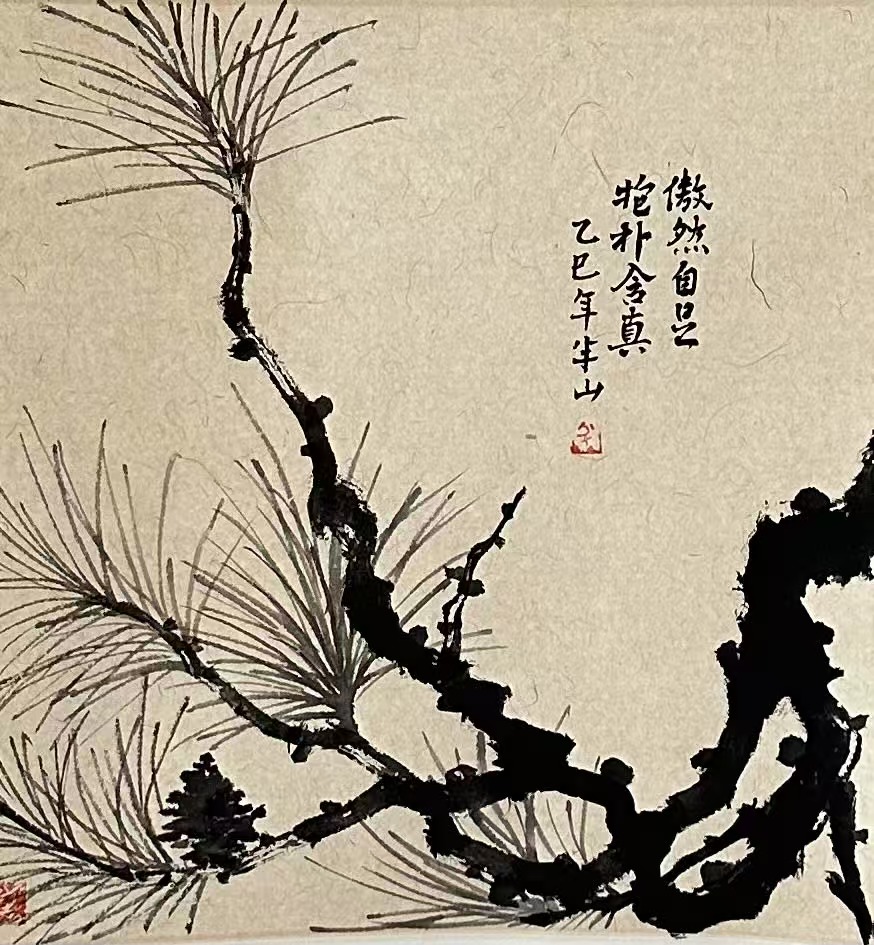 傲然自足
抱朴含真
乙巳年半山